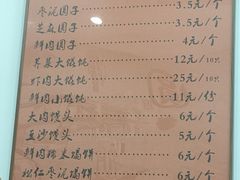 枣泥团子 3.5元/个
芝麻团子 3.5元/个
鲜肉团子 4元/个
荠菜大馄饨 12元/10只
虾肉大馄饨 25元/10只
鲜肉小馄饨 11元/份
大肉馒头 6元/个
豆沙馒头 5元/个
鲜肉糯米塌饼 6元/个
松仁枣泥塌饼 6元/个